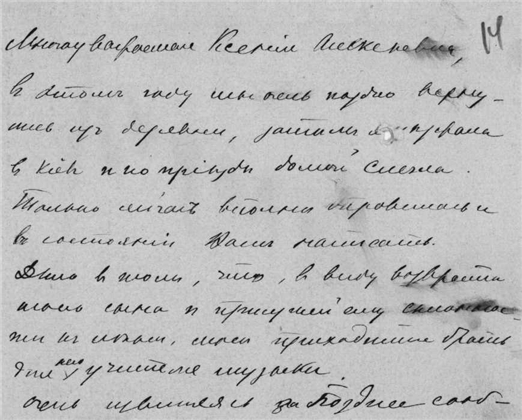 Многоуважаемая Ксения Алексеевна, 14
в этомъ году мы очень поздно верну-
лись изъ деревни, затѣмъ я
в Кіевъ и по пріѣзду домой слегла.
Только сейчасъ вполнѣ оправилась и
въ состояніи Вамъ написать.
Дѣло в томъ, что, в виду возраста
моего сына и присущей ему склоннос-
ти къ музыкѣ, мнѣ приходится брать
для него учителя музыки.
Очень извиняюсь за позднее сооб-